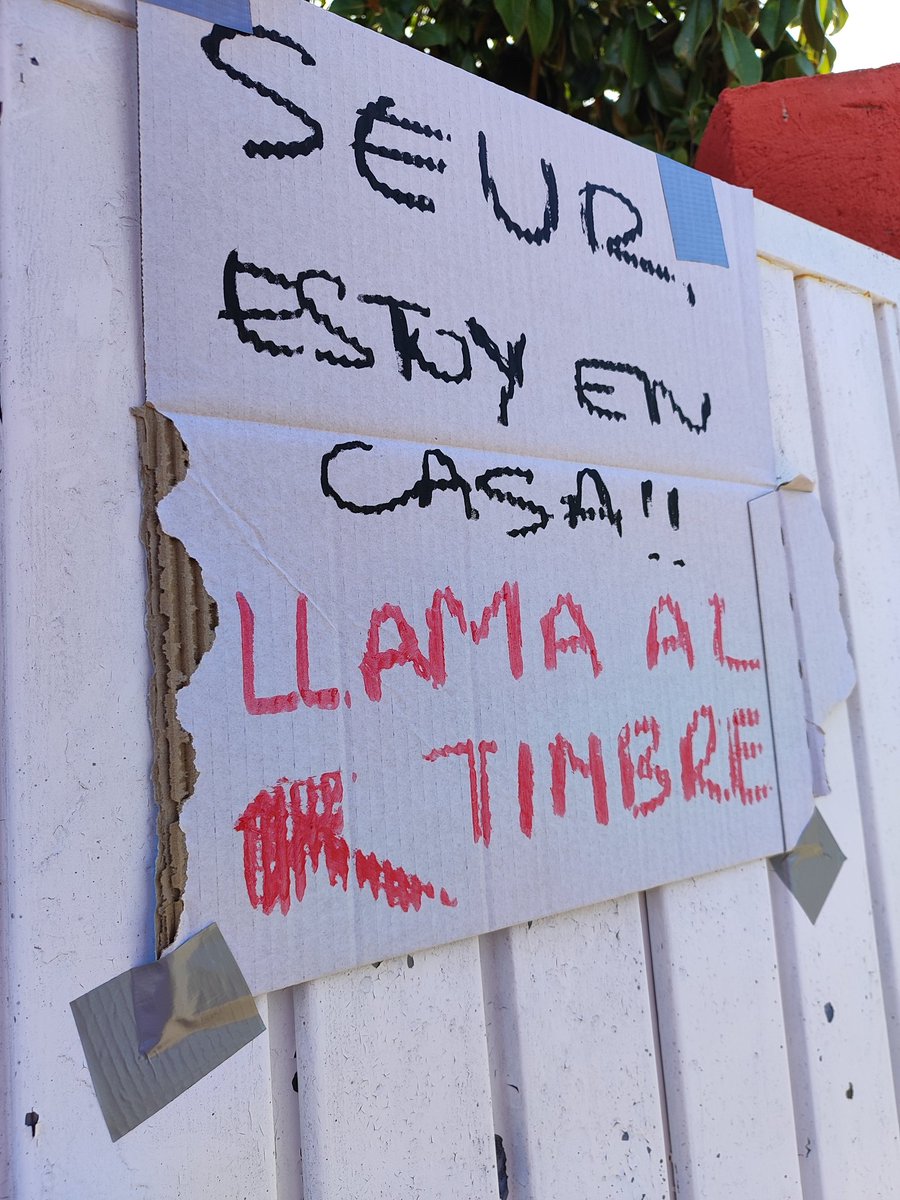 SEUR,
ESTOY EN
CASA!!
LLAMA AL
TIMBRE